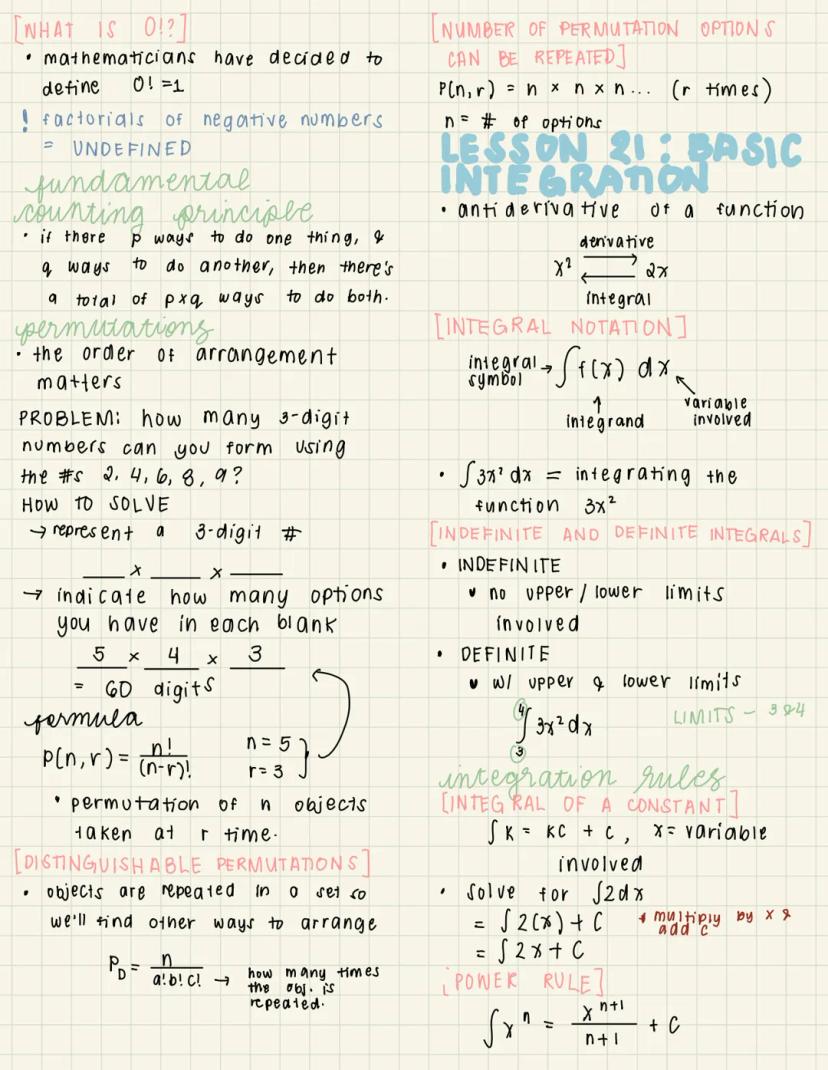 [WHAT IS 0!?]
• mathematicians have decided to
define 0! =1
! factorials of negative numbers
= UNDEFINED
fundamental
counting principle
• if there p ways to do one thing, &
q ways to do another, then there's
a total of p×q ways to do both.
permutations
• the order of arrangement
matters
PROBLEM: how many 3-digit
numbers can you form using
the #s 2, 4, 6, 8, 9?
HOW TO SOLVE
→ represent a 3-digit #
___ × ___ × ___
→ indicate how many options
you have in each blank
5 × 4 × 3
= 60 digits
formula
P(n,r) = n!/(n-r)! n = 5 r = 3
• permutation of n objects
taken at r time.
[DISTINGUISHABLE PERMUTATIONS]
• objects are repeated in a set so
we'll find other ways to arrange
P_D = n/a!b!c! → how many times
the obj. is
repeated.
[NUMBER OF PERMUTATION OPTIONS
CAN BE REPEATED]
P(n,r) = n × n × n... (r times)
n = # of options
LESSON 21: BASIC
INTEGRATION
• antiderivative of a function
derivative
x² ⇄ 2x
integral
[INTEGRAL NOTATION]
integral
symbol → ∫f(x) dx
↑ integrand
variable
involved
• ∫3x² dx = integrating the
function 3x²
[INDEFINITE AND DEFINITE INTEGRALS]
• INDEFINITE
• no upper/lower limits
involved
• DEFINITE
• w/ upper & lower limits
4
∫ 3x² dx LIMITS - 3 & 4
3
integration rules
[INTEGRAL OF A CONSTANT]
∫K = KC + C, x = variable
involved
• solve for ∫2dx
= ∫2(x) + C * multiply by x &
add C
= ∫2x + C
[POWER RULE]
∫xⁿ = xⁿ⁺¹/n+1 + C